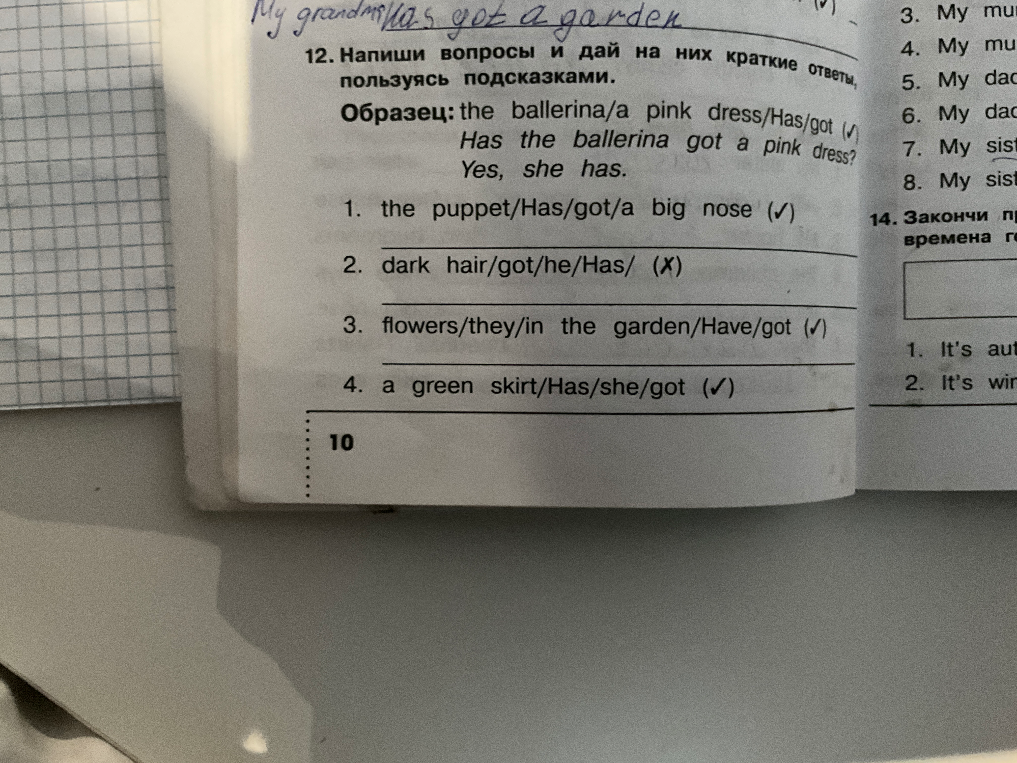 My grandma has got a garden
12. Напиши вопросы и дай на них краткие ответы,
пользуясь подсказками.
Образец: the ballerina/a pink dress/Has/got (✓)
Has the ballerina got a pink dress?
Yes, she has.
1. the puppet/Has/got/a big nose (✓)
2. dark hair/got/he/Has/ (✗)
3. flowers/they/in the garden/Have/got (✓)
4. a green skirt/Has/she/got (✓)
10
3. My mu
4. My mu
5. My dad
6. My dad
7. My sist
8. My sist
14. Закончи пр
времена го
1. It's aut
2. It's win